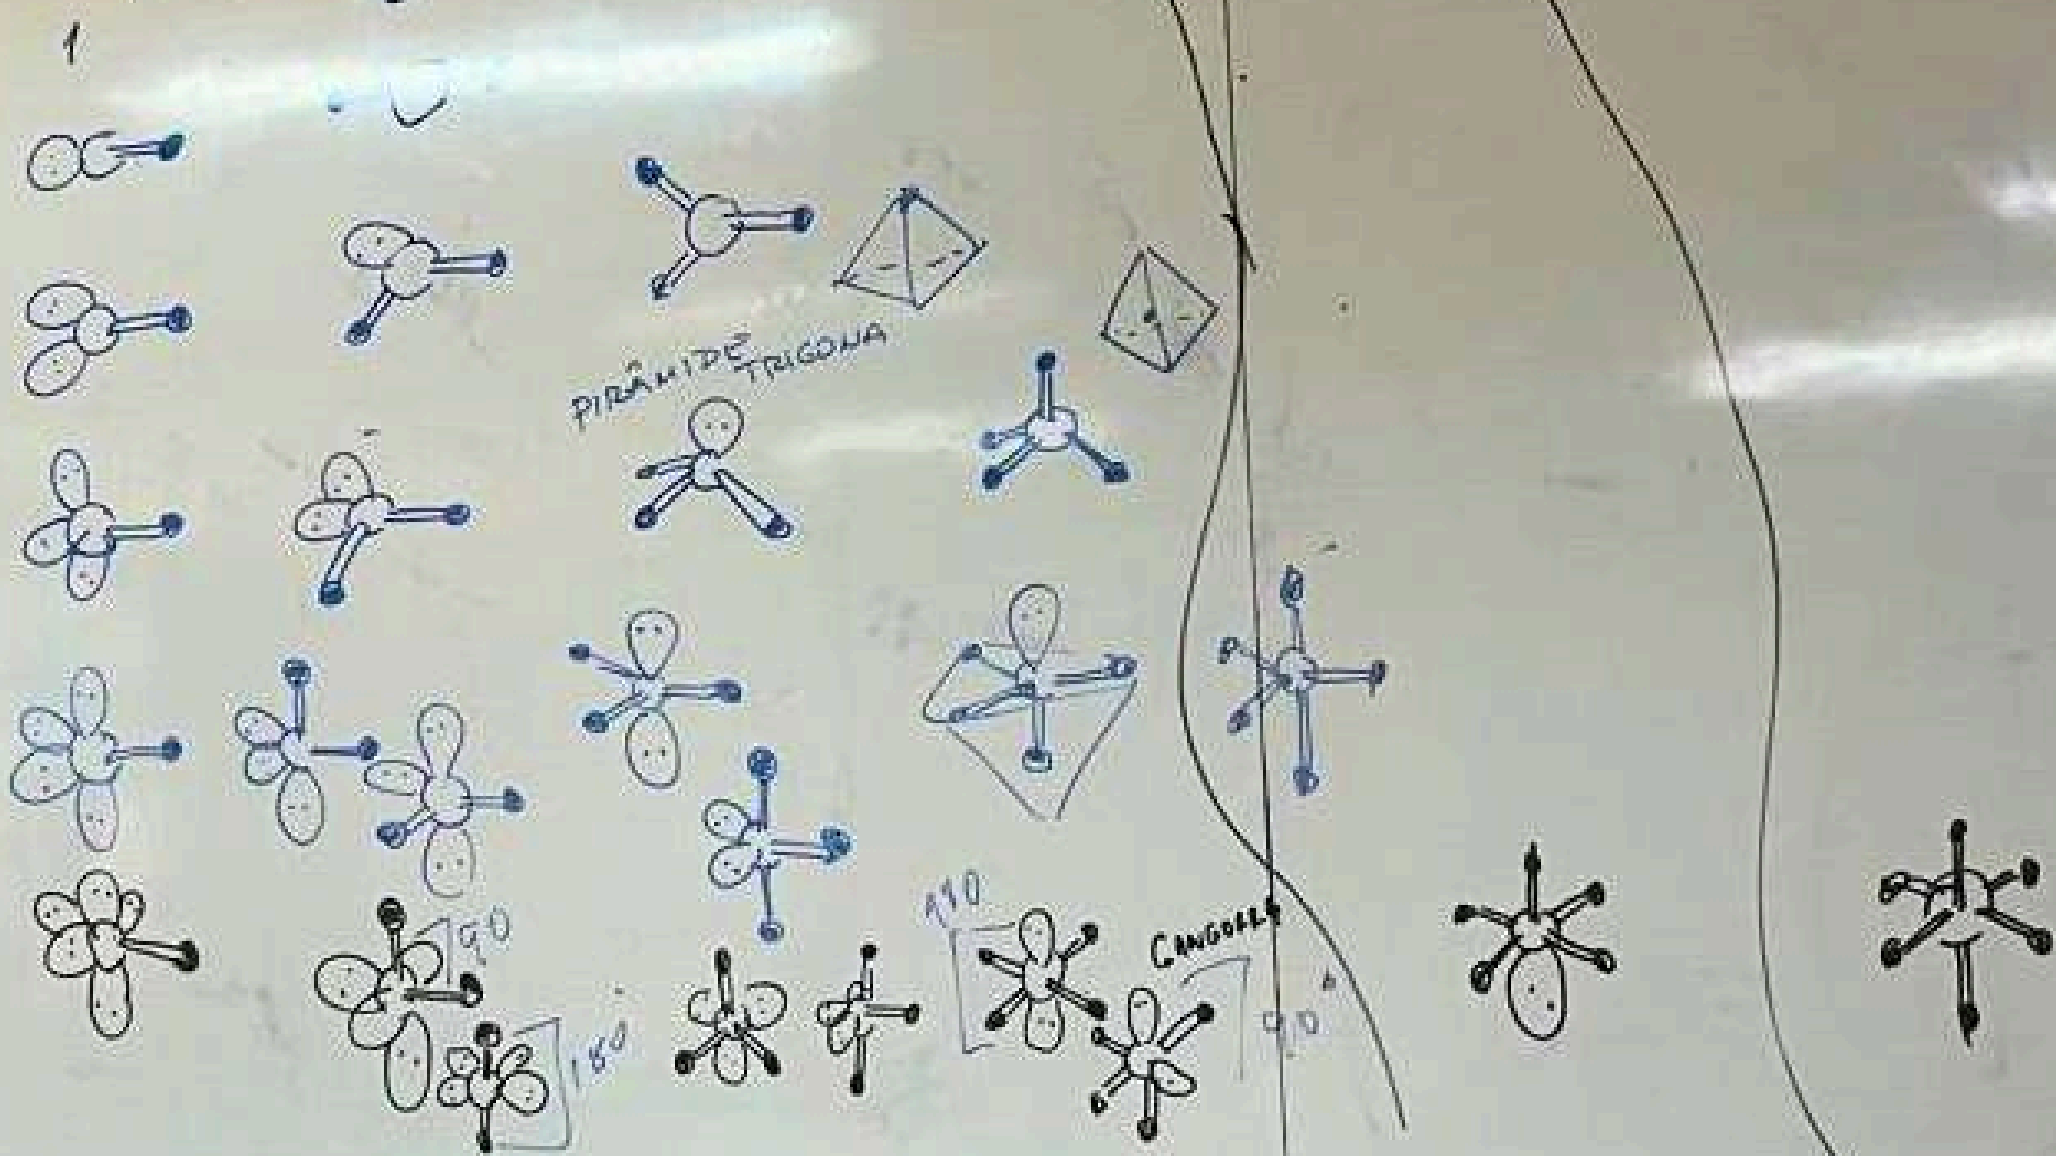 1
PIRÂMIDE
TRIGONA
90
180
180
CANGORRA
90